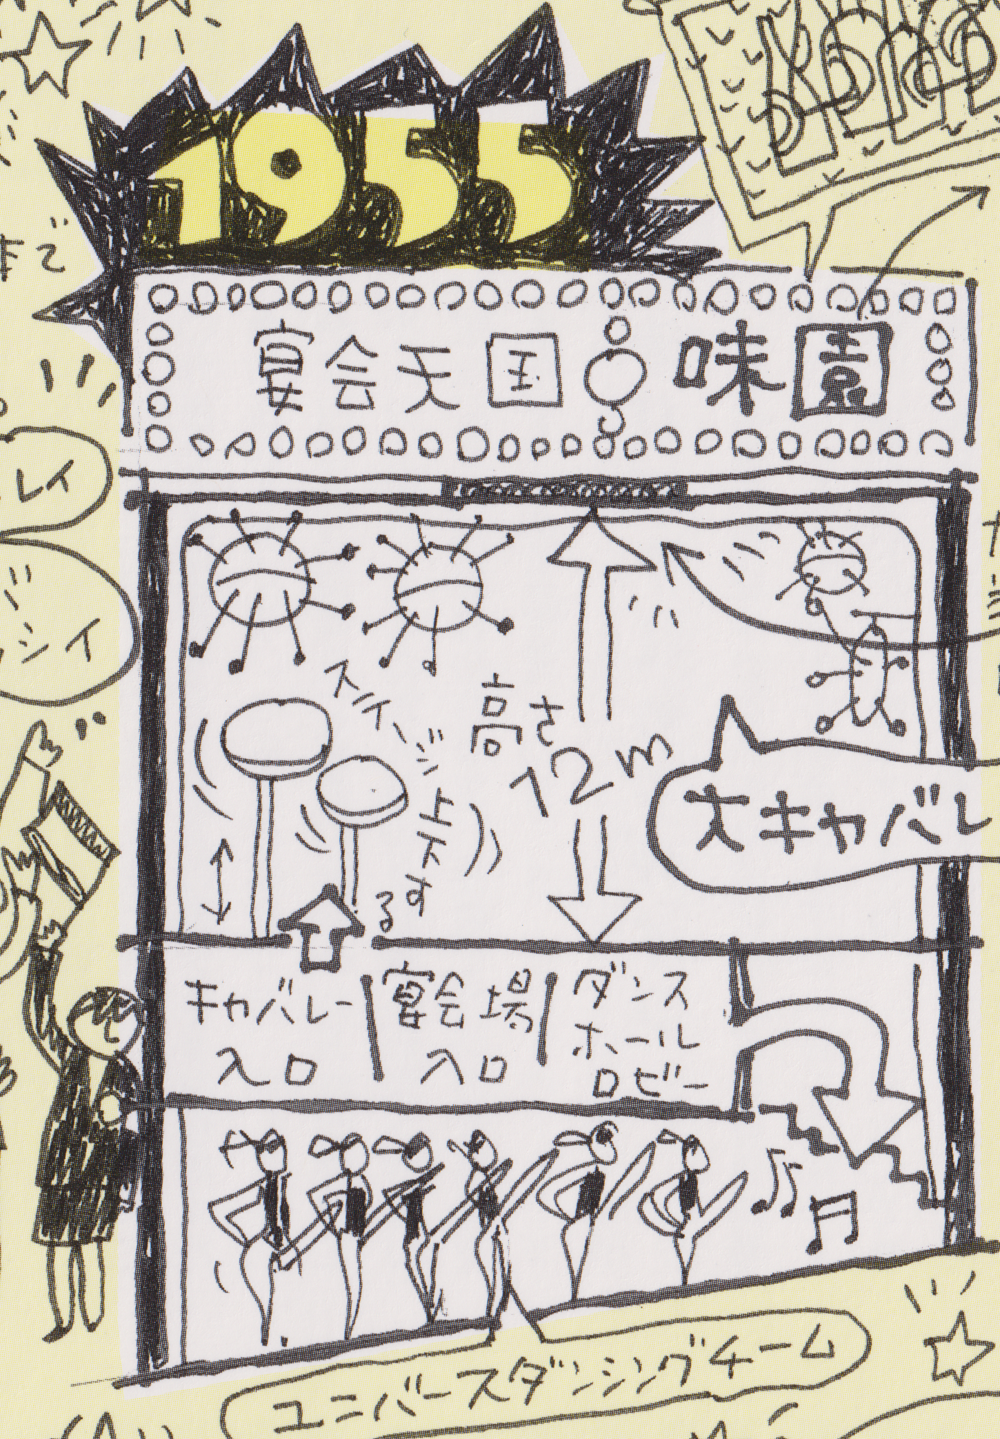 1955
まで
宴会天国 味園
レイ
シイ
ステージ上下する
高さ
12m
大キャバレ
キャバレー
入口
宴会場
入口
ダンス
ホール
ロビー
ユニバースダンシングチーム